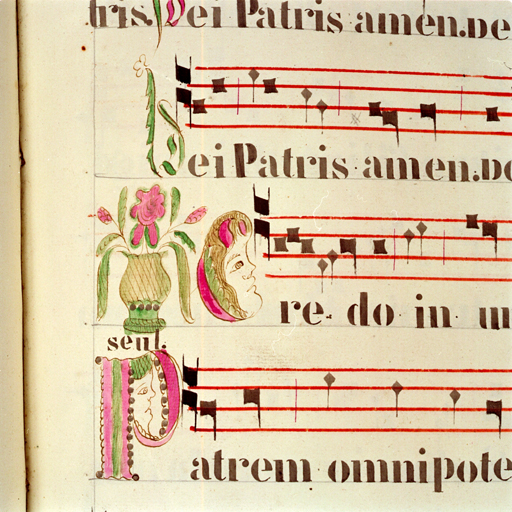 tris. Dei Patris amen. De
Dei Patris amen. De
Credo in u
seul.
Patrem omnipote